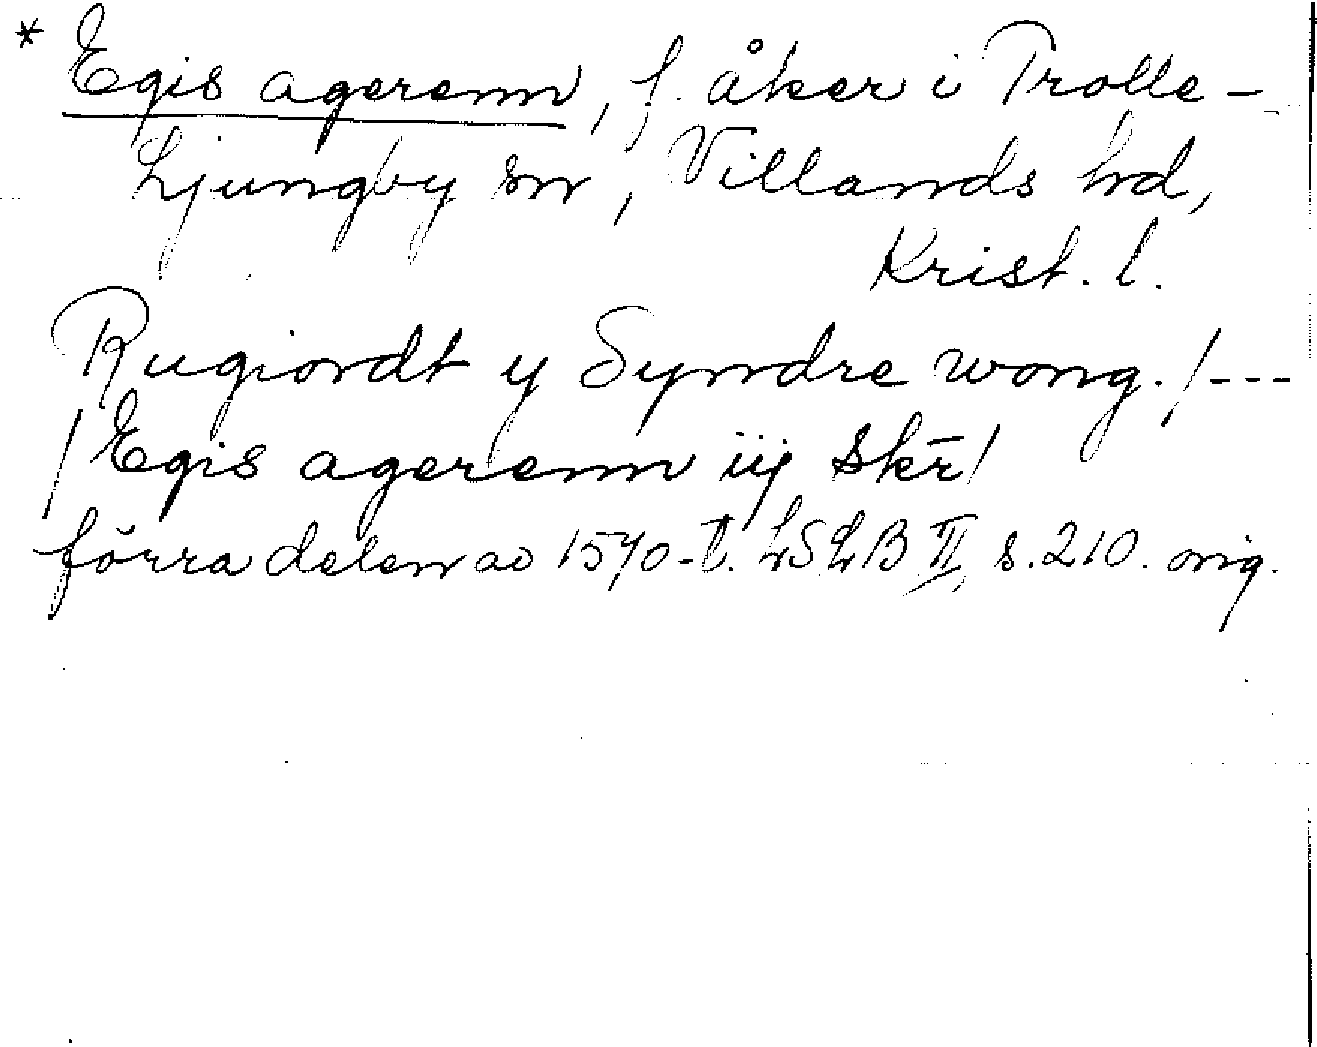 * Egis agerenn, f. åker i Trolle-
Ljungby sn, Villands hd,
Krist. l.
Rugiordt y Syndre wong. /---
/ Egis agerenn iij skr̄ /
förra delen av 1570-t. LSLB II, s. 210. orig.